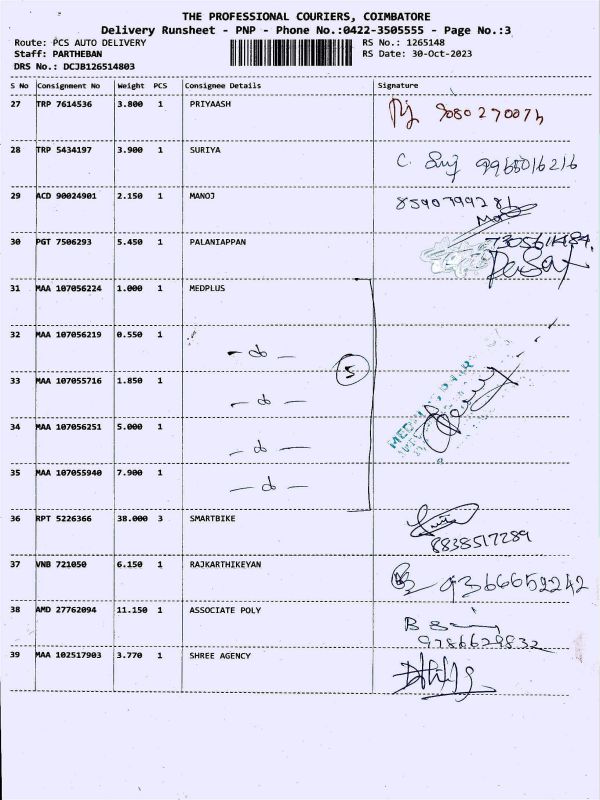 THE PROFESSIONAL COURIERS, COIMBATORE
Delivery Runsheet - PNP - Phone No.:0422-3505555 - Page No.:3
Route: PCS AUTO DELIVERY RS No.: 1265148
Staff: PARTHEBAN RS Date: 30-Oct-2023
DRS No.: DCJB126514803
S No Consignment No Weight PCS Consignee Details Signature
27 TRP 7614536 3.800 1 PRIYAASH
28 TRP 5434197 3.900 1 SURIYA
29 ACD 90024901 2.150 1 MANOJ
30 PGT 7506293 5.450 1 PALANIAPPAN
31 MAA 107056224 1.000 1 MEDPLUS
32 MAA 107056219 0.550 1 - do -
33 MAA 107055716 1.850 1 - do -
5
34 MAA 107056251 5.000 1 - do -
35 MAA 107055940 7.900 1 - do -
36 RPT 5226366 38.000 3 SMARTBIKE
8838517289
37 VNB 721050 6.150 1 RAJKARTHIKEYAN 9366652242
38 AMD 27762094 11.150 1 ASSOCIATE POLY
9786629832
39 MAA 102517903 3.770 1 SHREE AGENCY